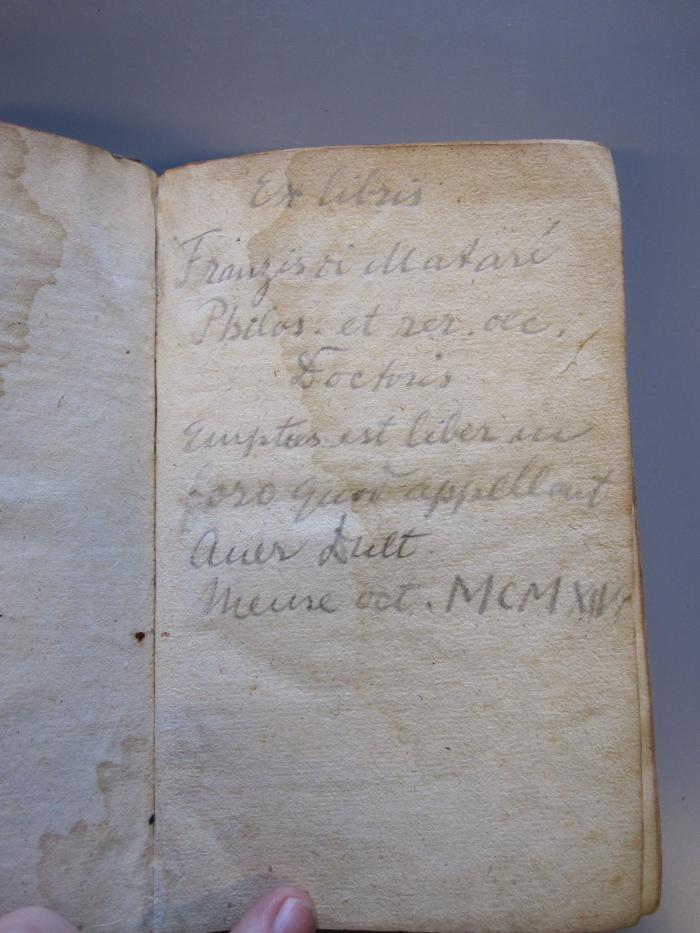 Ex libris
Franzisci Mataré
Philos. et rer. oec.
Doctoris
Emptus est liber in
foro quod appellant
Auer Dult.
Mense oct. MCMXIV